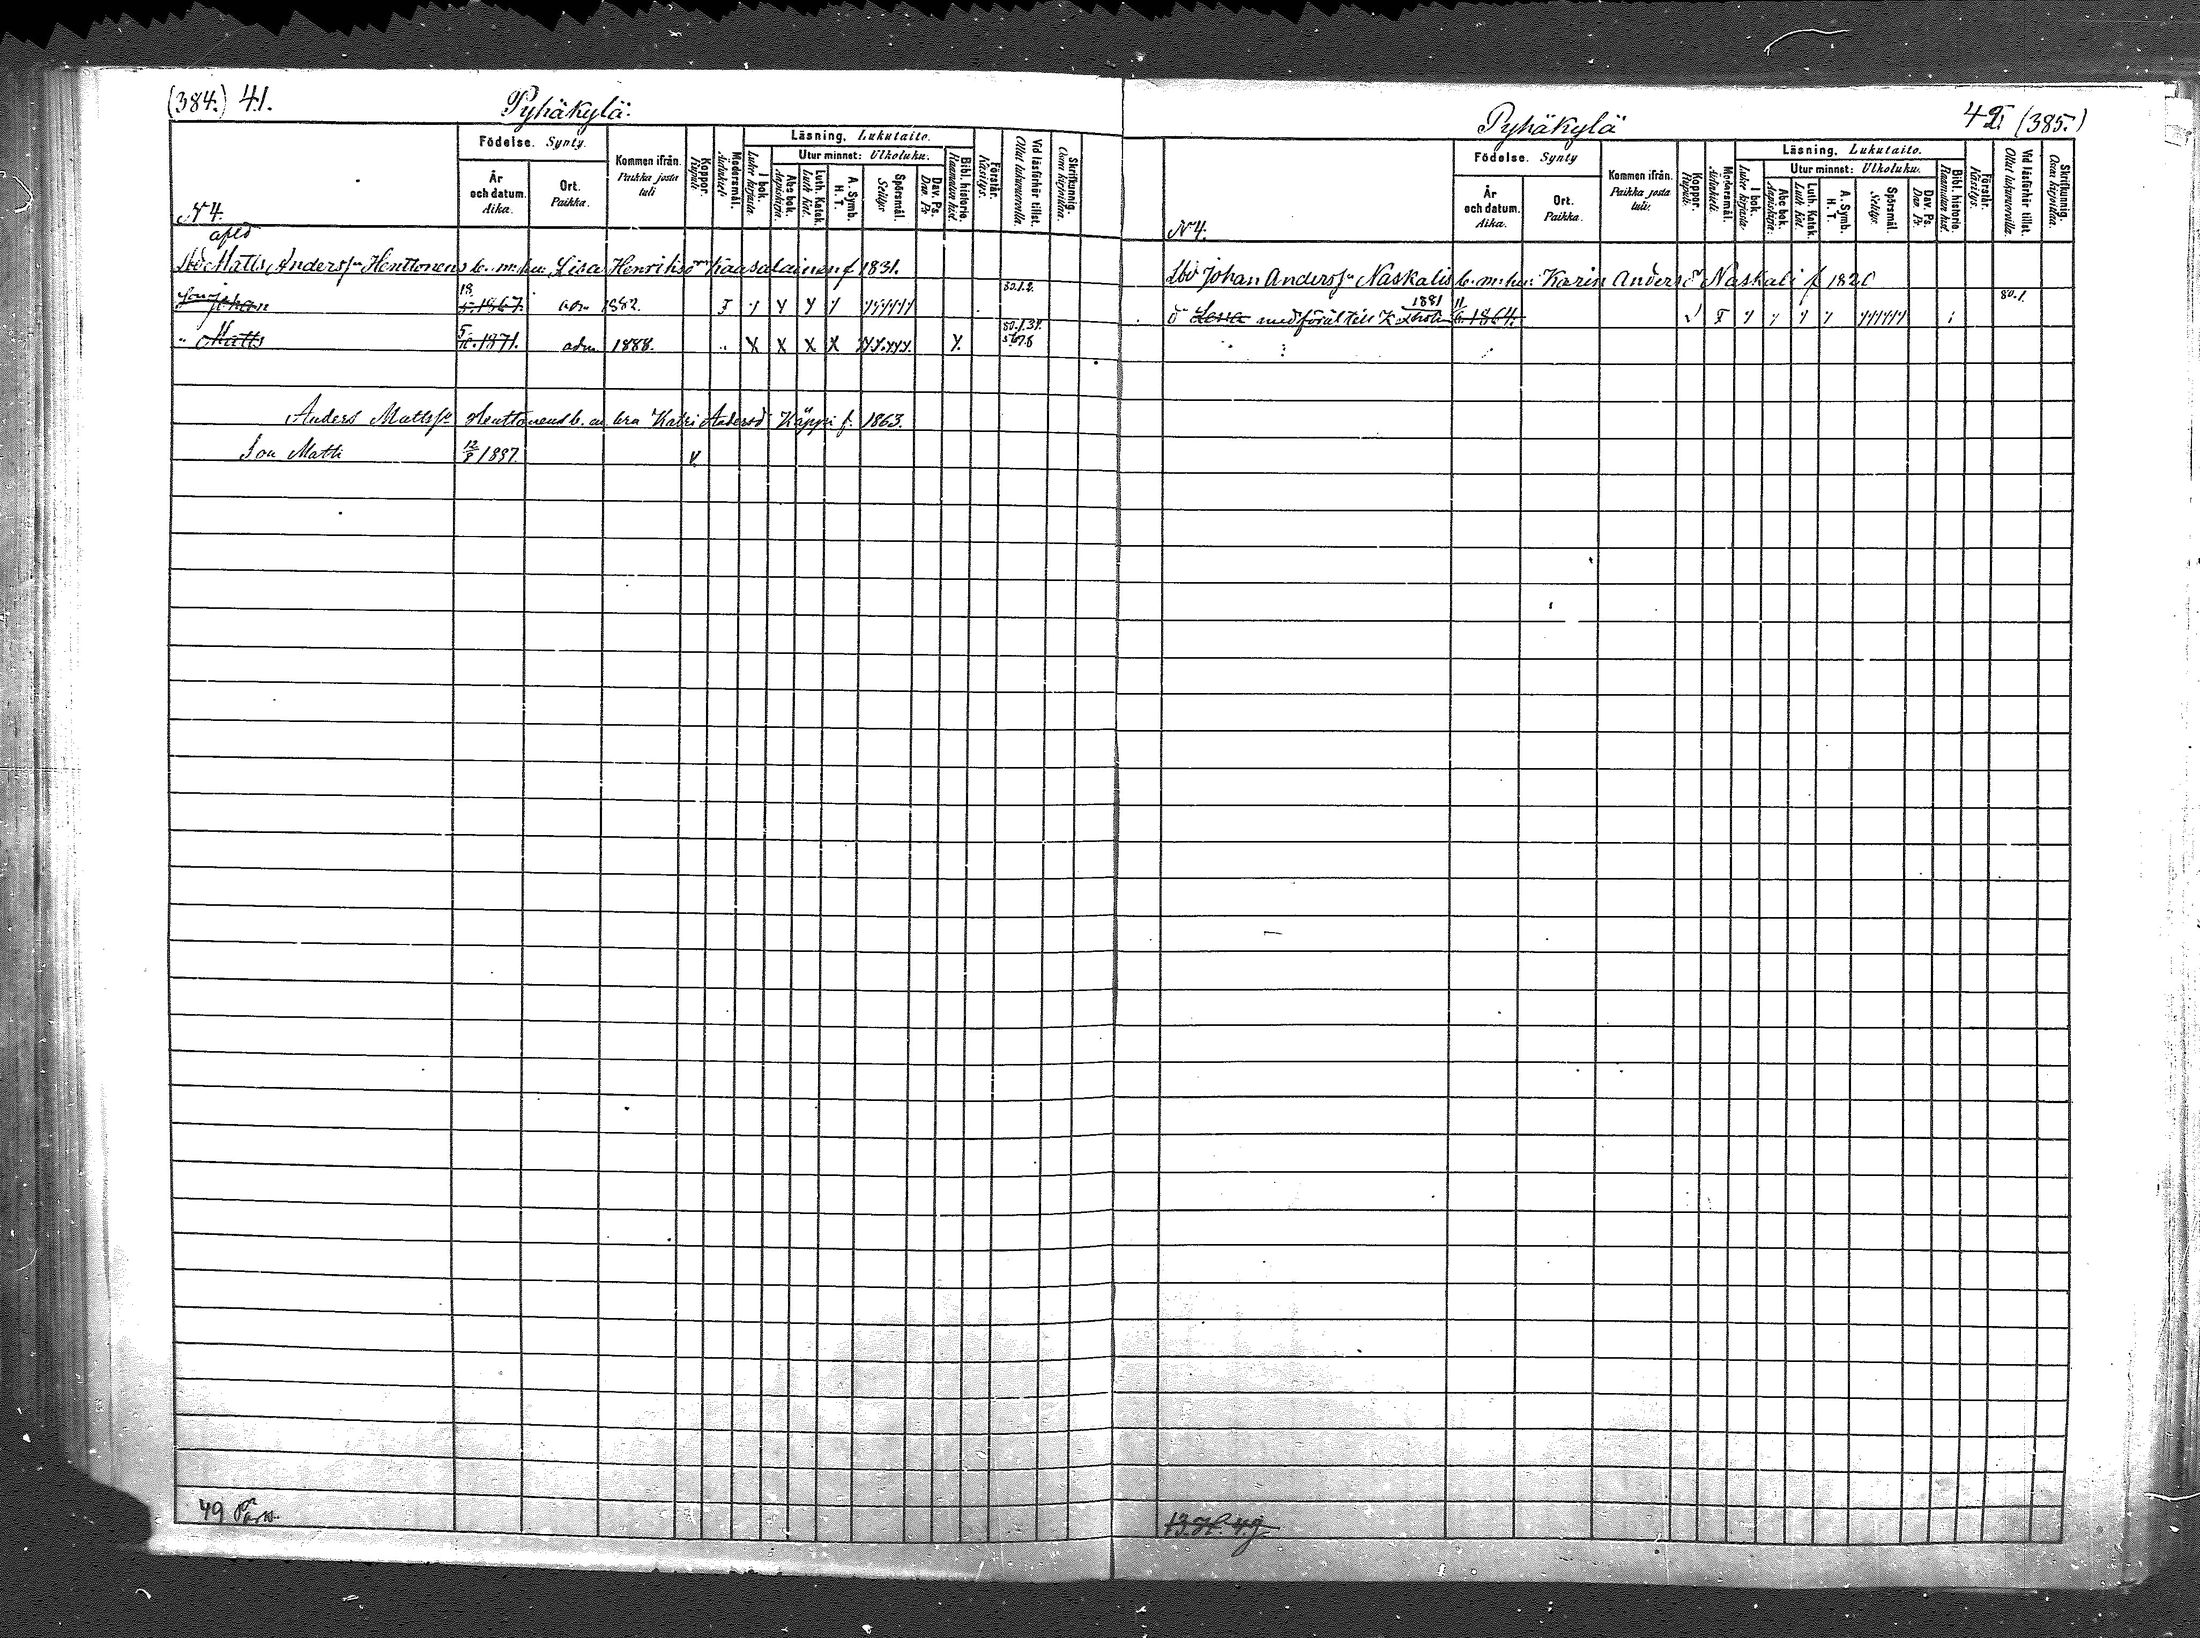 (384.) 41.
Pyhäkylä.
Födelse. Synty.
År och datum. Aika.
Ort. Paikka.
Kommen ifrån. Paikka josta tuli
Koppor. Rupuli.
Modersmål. Äidinkieli
Läsning. Lukutaito.
I bok. Lukee kirjasta.
Utur minnet: Ulkoluku.
Abc bok. Aapiskirja.
Luth. Katek. Luth. Kat.
A. Symb. H. T.
Spörsmål. Selitys
Dav. Ps. Dav. Ps
Bibl. historia. Raamatun hist.
Förstår. Käsitys.
Vid läsförhör tillst. Ollut lukuvuorolla.
Skrifkunnig. Osaa kirjoittaa.
N 4.
afled
Matts Anderss:n Henttonens b. m. hu: Lisa Henriksdr Kaasalainen f 1831.
Son Johan 18 1867. adm 1882. F 80.1.2.
" Matts 5/10.1871. adm 1888. " X X X X
Anders Mattss:n Henttonens b. m. hra Katri Andersd Käppi f. 1863.
Son Matti 12/8 1887. v.
49 Pärm.
Pyhäkylä
42 (385.)
Födelse. Synty
År och datum. Aika.
Ort. Paikka.
Kommen ifrån. Paikka josta tuli.
Koppor. Rupuli.
Modersmål. Äidinkieli.
Läsning. Lukutaito.
I bok. Lukee kirjasta.
Utur minnet: Ulkoluku.
Abc bok. Aapiskirja.
Luth. Katek. Luth. Kat
A. Symb. H. T.
Spörsmål. Selitys.
Dav. Ps. Dav. Ps.
Bibl. historia. Raamatun hist.
Förstår. Käsitys.
Vid läsförhör tillst. Ollut lukuvuorolla.
Skrifkunnig. Osaa kirjoittaa.
N 4.
Johan Anderss:n Naskalis b. m. hu: Karin Andersd Naskali f 1820
d med föräl till K 1881 11/6.1864. F 80.1.